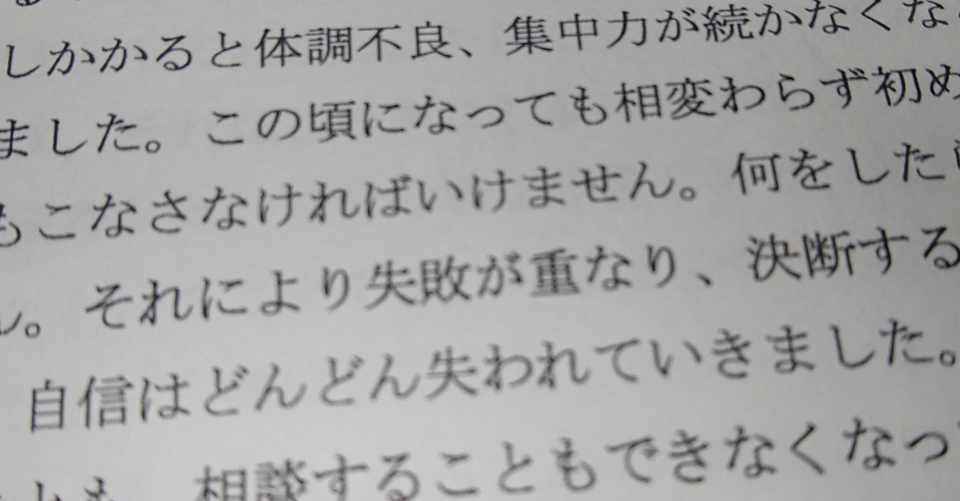 しかかると体調不良、集中力が続かなくな
ました。この頃になっても相変わらず初め
もこなさなければいけません。何をした
ん。それにより失敗が重なり、決断する
自信はどんどん失われていきました。
相談することもできなくなっ